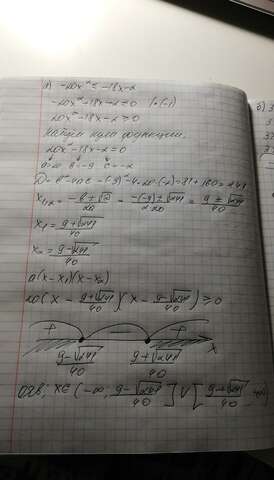 а) -20x² ≤ -18x-2
-20x²-18x-2≤0 |·(-1)
20x²-18x-2≥0
Найдём нули функции.
20x²-18x-2=0
a=20 b=-9 c=-2
D=b²-4ac=(-9)²-4·20·(-2)=81+160=241
x₁,₂ = (-b±√D)/2a = (-(-9)±√241)/2·20 = (9±√241)/40
x₁ = (9+√241)/40
x₂ = (9-√241)/40
a(x-x₁)(x-x₂)
20(x - (9+√241)/40)(x - (9-√241)/40) ≥ 0
+ - +
(9-√241)/40 (9+√241)/40 x
Отв; x∈(-∞; (9-√241)/40]∪[(9+√241)/40; +∞)
б)